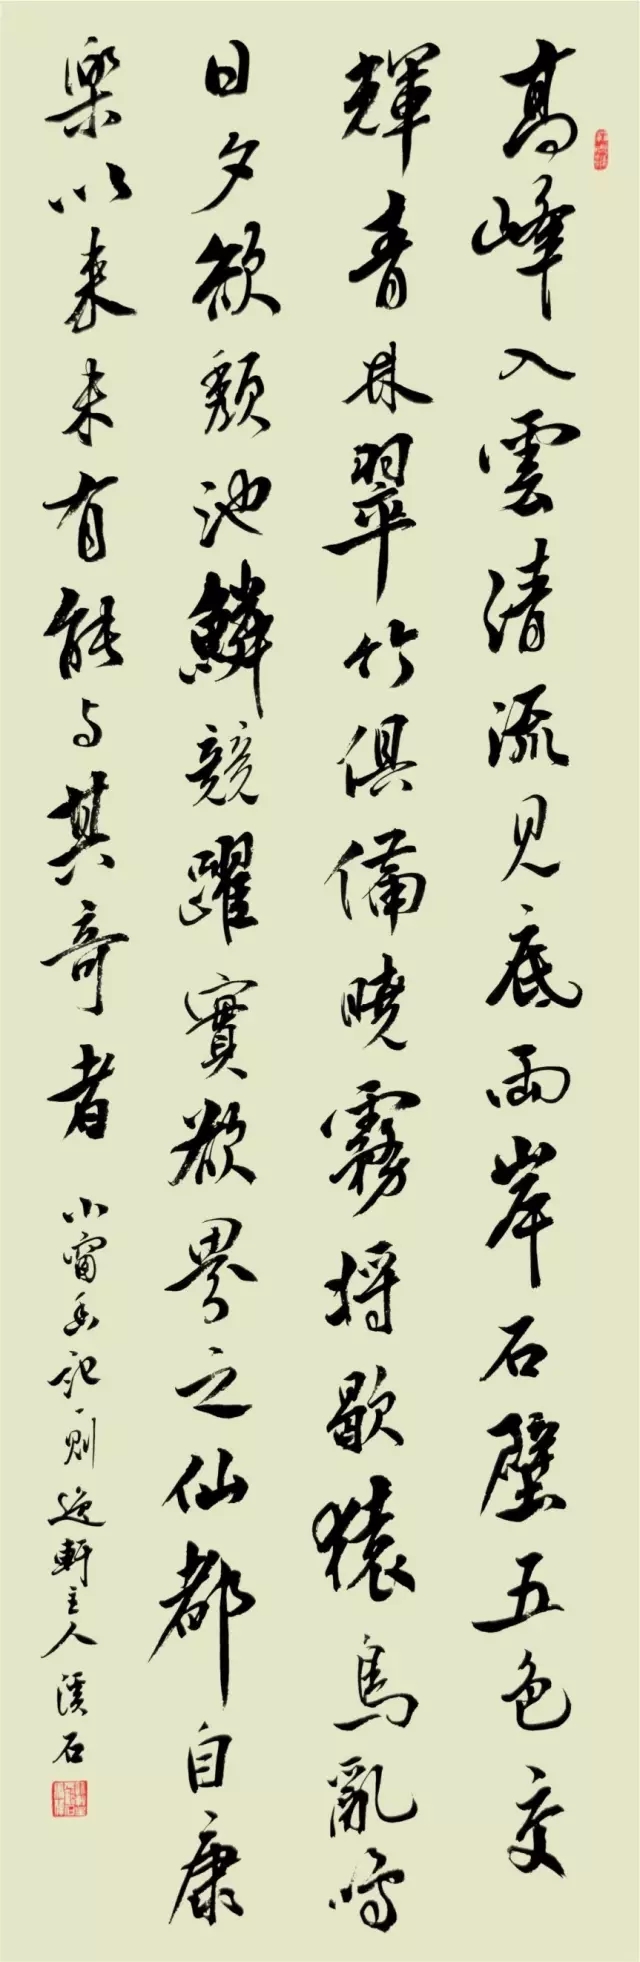 高峰入雲清流見底兩岸石壁五色交
輝青林翠竹俱備曉霧將歇猿鳥亂鳴
日夕欲頹池鱗競躍實欲界之仙都自康
樂以来未有能与其奇者 小窗幽記一則 逸軒主人 溪石